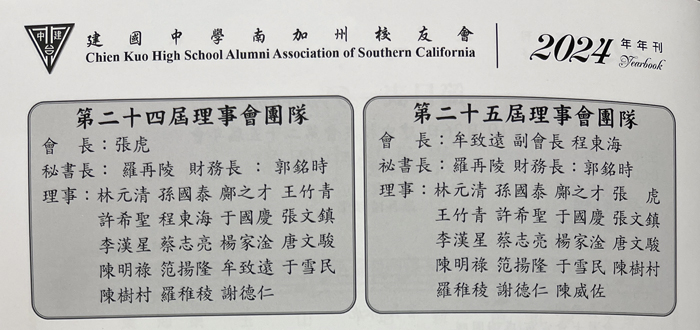 建國中學南加州校友會
Chien Kuo High School Alumni Association of Southern California
2024 年年刊
Yearbook
第二十四屆理事會團隊
會 長：張虎
秘書長： 羅再陵 財務長 ： 郭銘時
理事：林元清 孫國泰 鄺之才 王竹青
許希聖 程東海 于國慶 張文鎮
李漢星 蔡志亮 楊家淦 唐文駿
陳明祿 范揚隆 牟致遠 于雪民
陳樹村 羅稚稜 謝德仁
第二十五屆理事會團隊
會 長：牟致遠 副會長 程東海
秘書長：羅再陵 財務長：郭銘時
理事：林元清 孫國泰 鄺之才 張 虎
王竹青 許希聖 于國慶 張文鎮
李漢星 蔡志亮 楊家淦 唐文駿
陳明祿 范揚隆 于雪民 陳樹村
羅稚稜 謝德仁 陳威佐